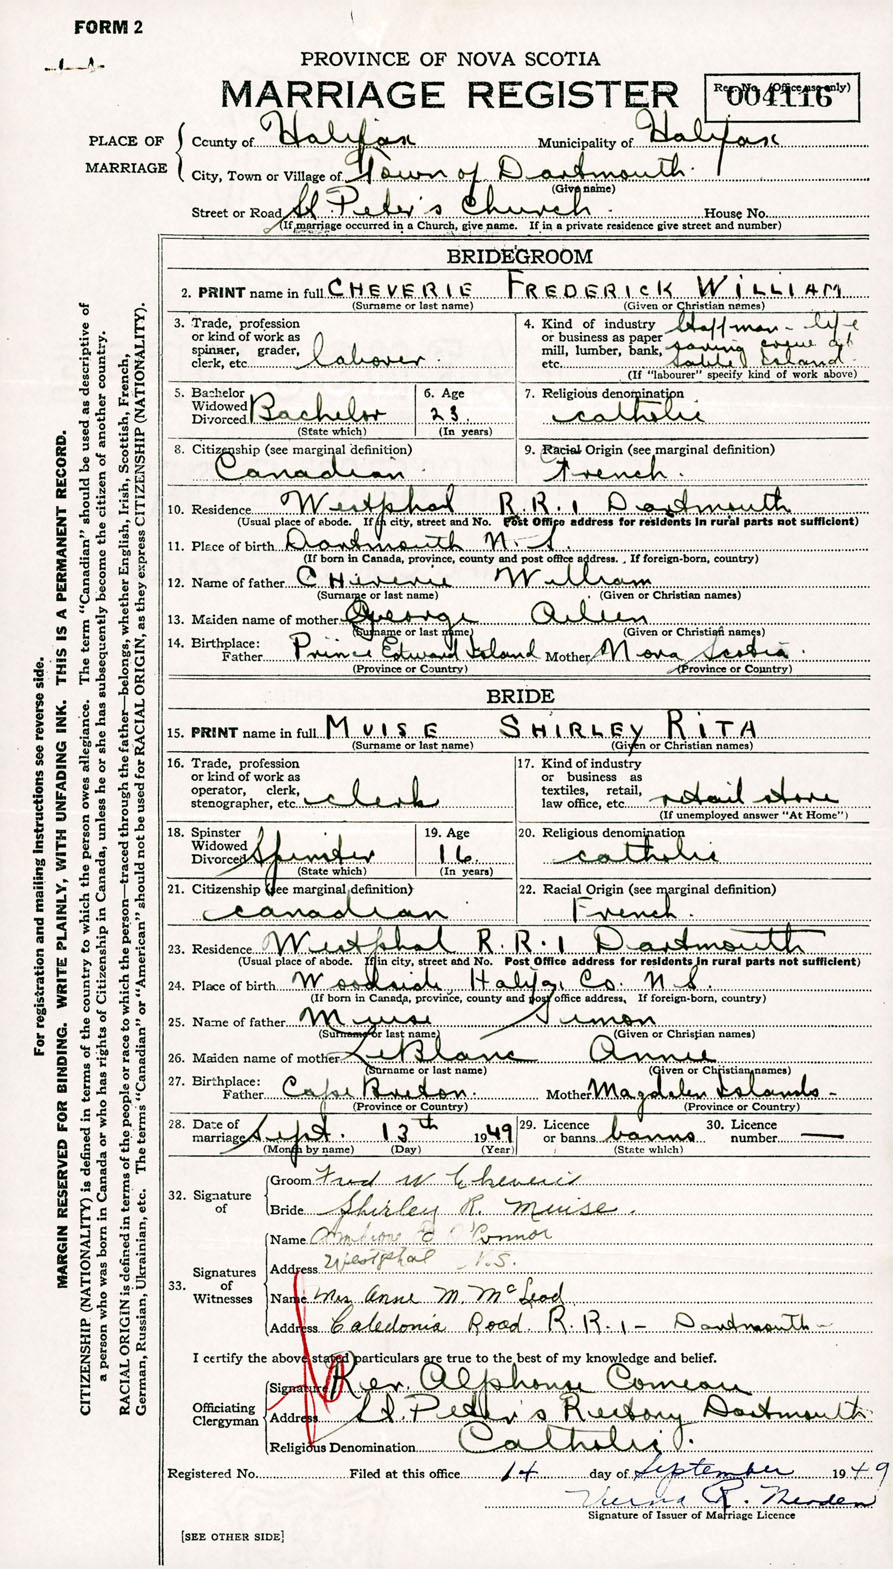 FORM 2
PROVINCE OF NOVA SCOTIA
MARRIAGE REGISTER
Reg. No. (Office use only)
004116
PLACE OF MARRIAGE
County of Halifax Municipality of Halifax
City, Town or Village of Town of Dartmouth
(Give name)
Street or Road St. Peter's Church. House No.
(If marriage occurred in a Church, give name. If in a private residence give street and number)
BRIDEGROOM
2. PRINT name in full CHEVERIE FREDERICK WILLIAM
(Surname or last name) (Given or Christian names)
3. Trade, profession or kind of work as spinner, grader, clerk, etc. labover.
4. Kind of industry or business as paper mill, lumber, bank, etc. Staffman - life saving crew at Sable Island
(If "labourer" specify kind of work above)
5. Bachelor Widowed Divorced Bachelor
(State which)
6. Age 23.
(In years)
7. Religious denomination catholic
8. Citizenship (see marginal definition) Canadian.
9. Racial Origin (see marginal definition) French.
10. Residence Westphal R.R.1 Dartmouth
(Usual place of abode. If in city, street and No. Post Office address for residents in rural parts not sufficient)
11. Place of birth Dartmouth N.S.
(If born in Canada, province, county and post office address. If foreign-born, country)
12. Name of father Cheverie William
(Surname or last name) (Given or Christian names)
13. Maiden name of mother George
(Surname or last name) (Given or Christian names)
14. Birthplace: Father Prince Edward Island Mother Nova Scotia.
(Province or Country) (Province or Country)
BRIDE
15. PRINT name in full MUISE SHIRLEY RITA
(Surname or last name) (Given or Christian names)
16. Trade, profession or kind of work as operator, clerk, stenographer, etc. clerk
17. Kind of industry or business as textiles, retail, law office, etc. retail store
(If unemployed answer "At Home")
18. Spinster Widowed Divorced Spinster
(State which)
19. Age 16.
(In years)
20. Religious denomination catholic
21. Citizenship (see marginal definition) canadian
22. Racial Origin (see marginal definition) French.
23. Residence Westphal R.R.1 Dartmouth
(Usual place of abode. If in city, street and No. Post Office address for residents in rural parts not sufficient)
24. Place of birth Woodside, Halifax Co. N.S.
(If born in Canada, province, county and post office address, If foreign-born, country)
25. Name of father Muise Simon
(Surname or last name) (Given or Christian names)
26. Maiden name of mother LeBlanc Annie
(Surname or last name) (Given or Christian names)
27. Birthplace: Father Cape Breton. Mother Magdalen Islands -
(Province or Country) (Province or Country)
28. Date of marriage Sept. 13th 1949
(Month by name) (Day) (Year)
29. Licence or banns banns
(State which)
30. Licence number —
32. Signature of
Groom Fred W Cheverie
Bride Shirley R. Muise.
33. Signatures of Witnesses
Name Ambrose O'Connor
Address Westphal N.S.
Name Mrs Anne M. McLeod
Address Caledonia Road. R.R.1 - Dartmouth -
I certify the above stated particulars are true to the best of my knowledge and belief.
Officiating Clergyman
Signature Rev. Alphonse Comeau
Address St. Peter's Rectory Dartmouth
Religious Denomination Catholic.
Registered No. Filed at this office 14 day of September 1949
R.
Signature of Issuer of Marriage Licence
[SEE OTHER SIDE]
For registration and mailing instructions see reverse side.
MARGIN RESERVED FOR BINDING. WRITE PLAINLY, WITH UNFADING INK. THIS IS A PERMANENT RECORD.
CITIZENSHIP (NATIONALITY) is defined in terms of the country to which the person owes allegiance. The term "Canadian" should be used as descriptive of
a person who was born in Canada or who has rights of Citizenship in Canada, unless he or she has subsequently become the citizen of another country.
RACIAL ORIGIN is defined in terms of the people or race to which the person—traced through the father—belongs, whether English, Irish, Scottish, French,
German, Russian, Ukrainian, etc. The terms "Canadian" or "American" should not be used for RACIAL ORIGIN, as they express CITIZENSHIP (NATIONALITY).